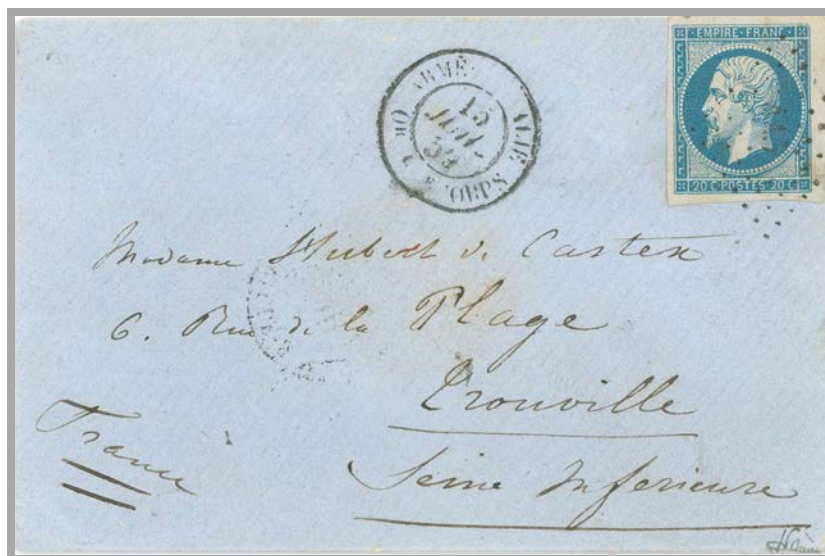 EMPIRE · FRANC ·
20 C · POSTES · 20 C
15
JUIL
Madame Hubert de Castex
6. Rue de la Plage
Trouville
Seine Inferieure
France